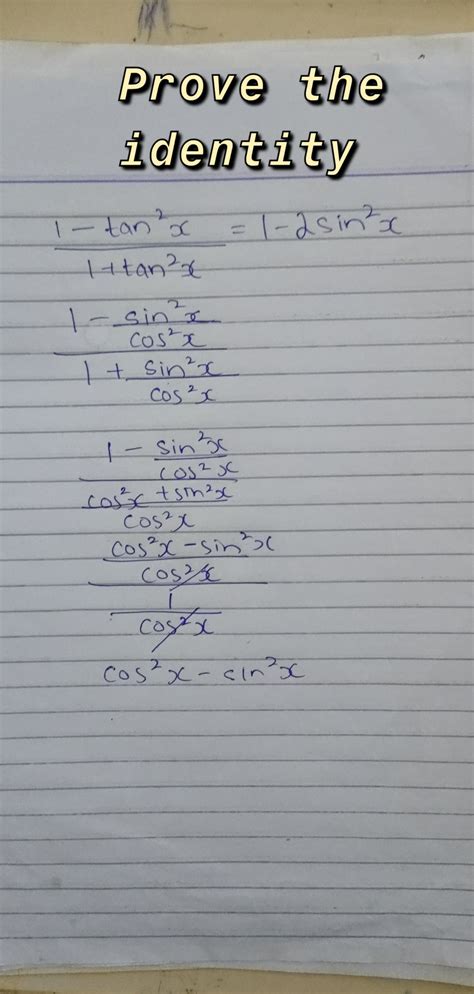 Prove the
identity
1 - tan²x = 1 - 2sin²x
1 + tan²x
1 - sin²x
cos²x
1 + sin²x
cos²x
1 - sin²x
cos²x
cos²x + sin²x
cos²x
cos²x - sin²x
cos²x
1
cos²x
cos²x - sin²x